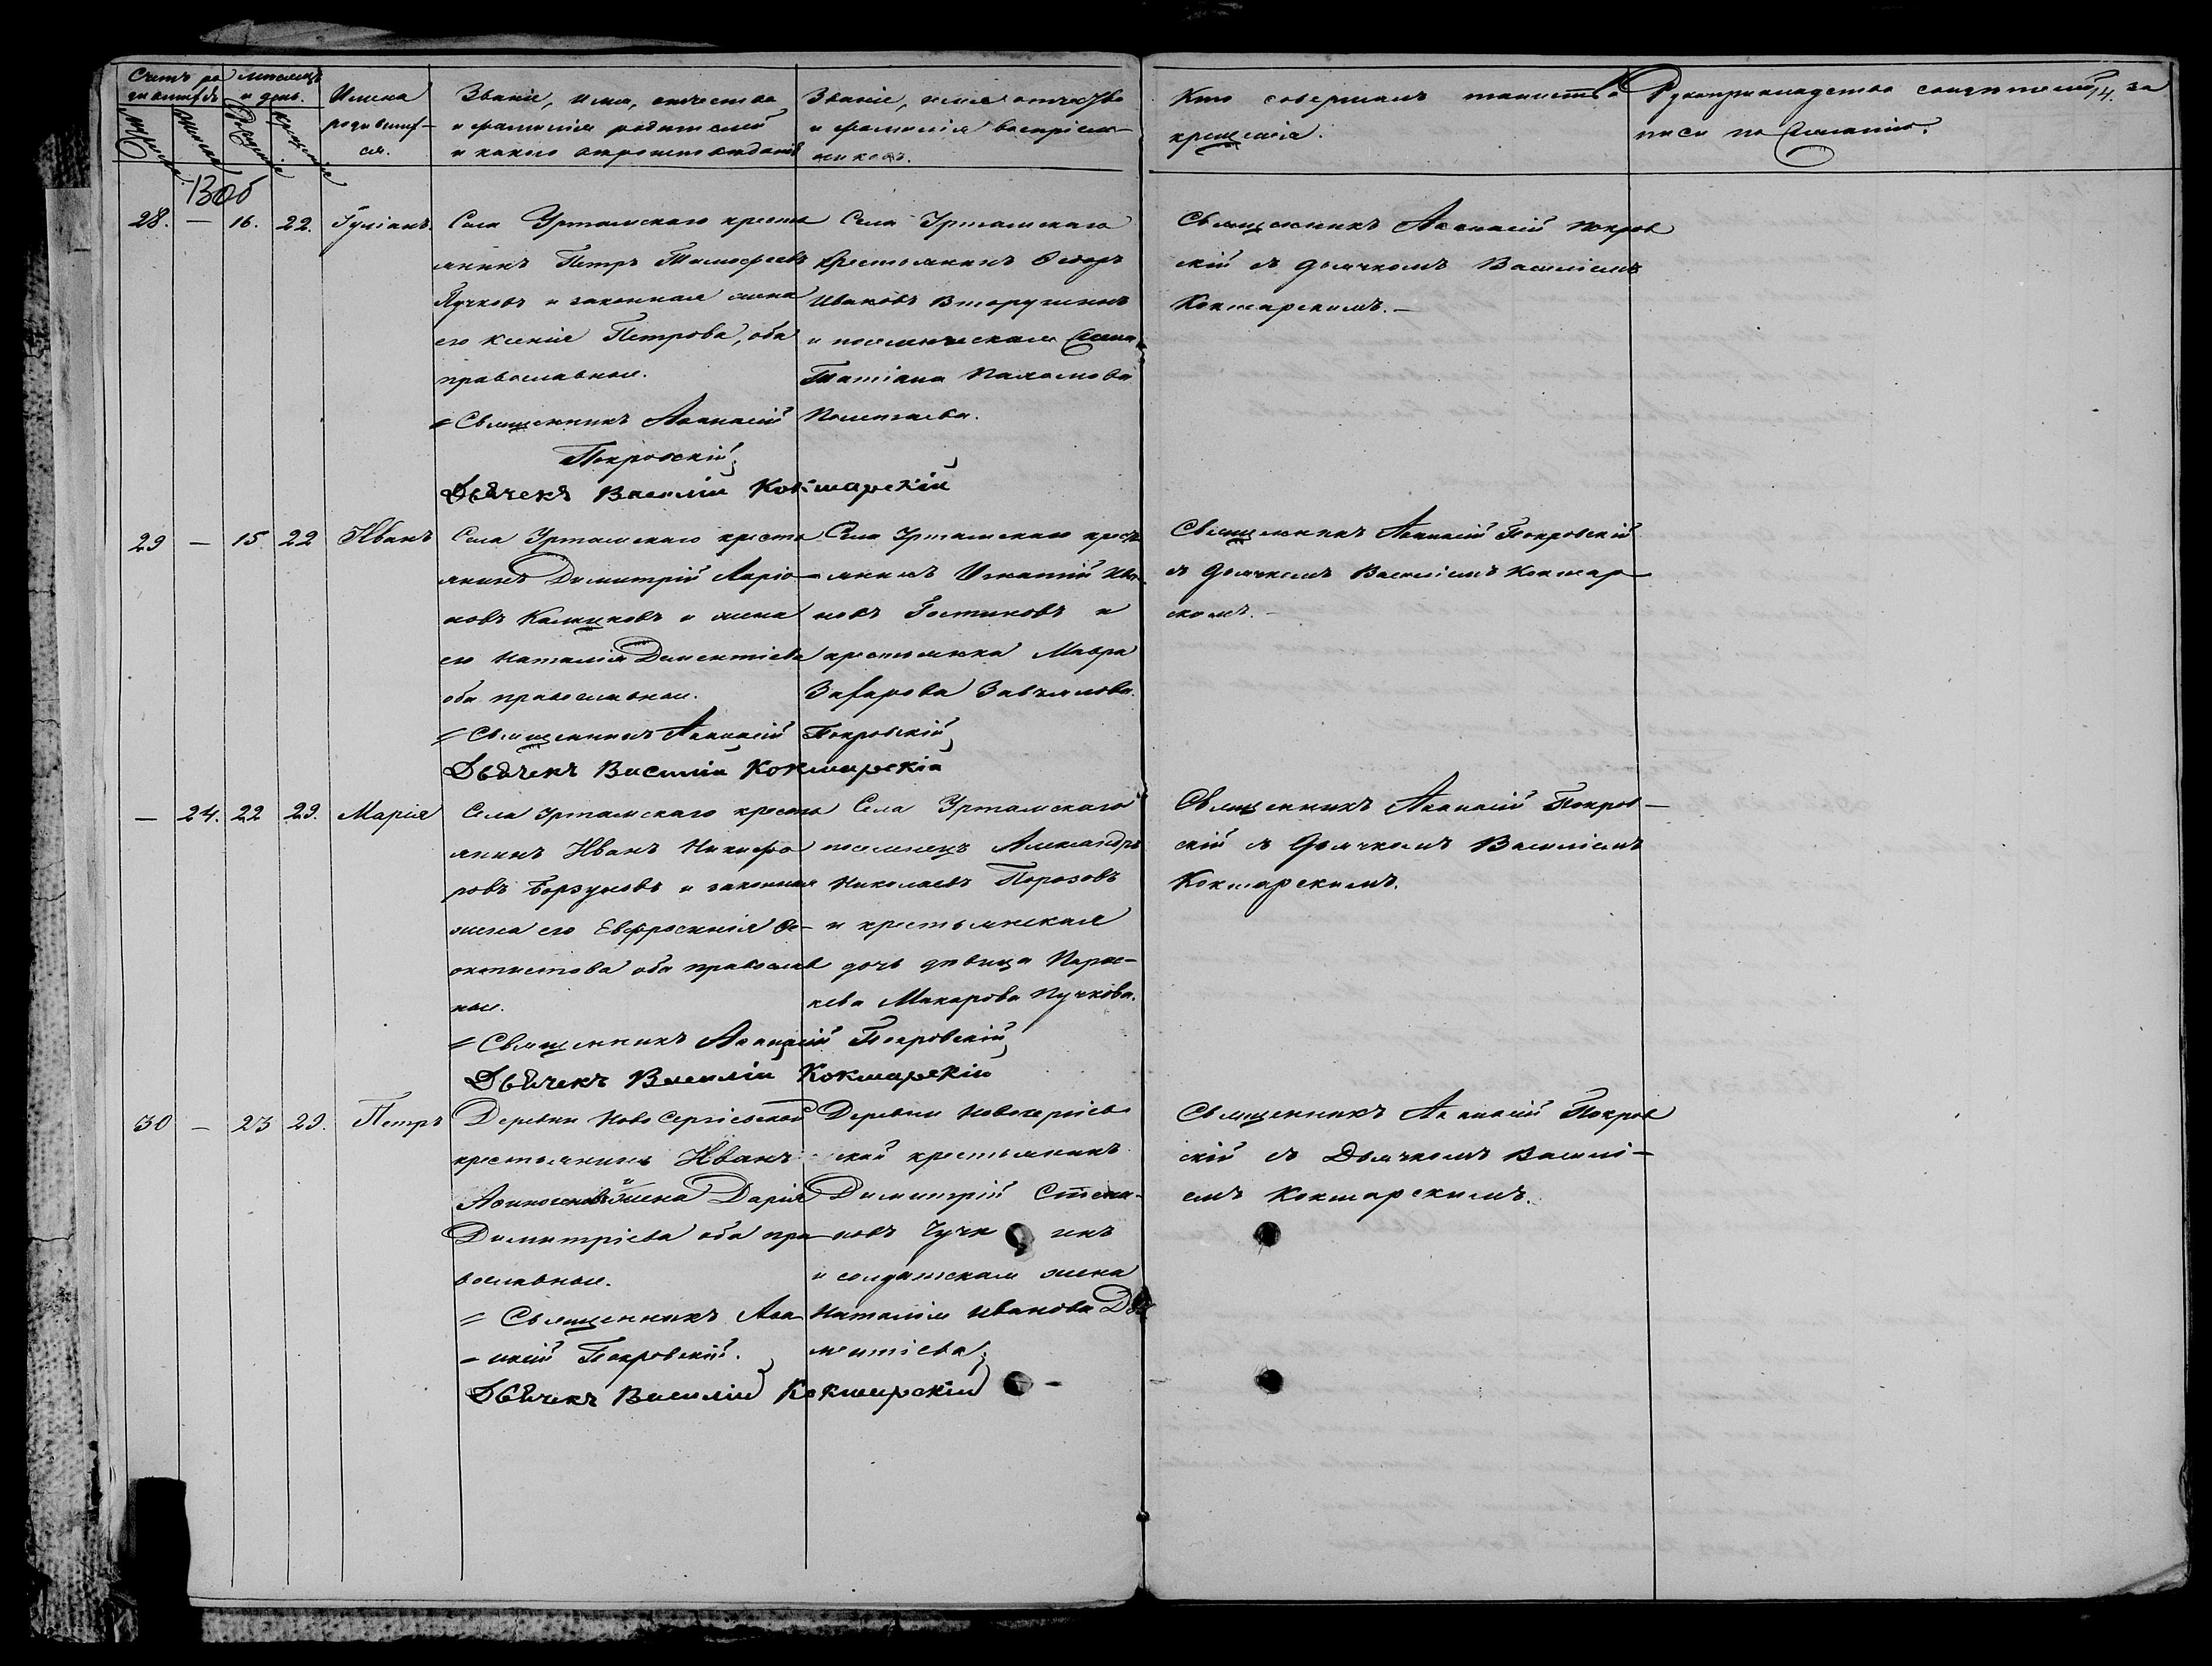 Счетъ ро
дившихся
Месяцъ
и день.
Имена
родивших-
ся.
Званіе, имя, отчество
и фамилія родителей
и какого вероисповеданія
Званіе, имя отчество
и фамилія воспріем-
никовъ.
Кто совершалъ таинство
крещенія.
Рукоприкладство свидетелей за
писи по желанію.
14.
13об
28. — 16. 22. Іуліанъ
Села Уртамскаго кресть
янинъ Петръ Тимофеевъ
Пучковъ и законная жена
его Ксенія Петрова, оба
православные.
Священникъ Афанасій
Покровскій
Дьячекъ Василіи Кокшарскіи
Села Уртамскаго
крестьянинъ Ѳедоръ
Ивановъ Вторушинъ
и поселенческая жена
Татіана Пахомова
Полетаева.
Священникъ Афанасій Покров
скій съ дьячкомъ Василіемъ
Кокшарскимъ.—
29 — 15. 22 Иванъ
Села Уртамскаго кресть
янинъ Димитрій Ларіо-
новъ Калицковъ и жена
его Наталія Дементіева
оба православные.
Священникъ Афанасій Покровскій
Дьячекъ Василіи Кокшарскіи
Села Уртамскаго кресть
янинъ Игнатій Ива-
новъ Гостиновъ и
крестьянка Мавра
Захарова Завьялова.
Священникъ Афанасій Покровскій
съ дьячкомъ Василіемъ Кокшар
скимъ.—
— 24. 22 29. Марія
Села Уртамскаго кресть
янинъ Иванъ Никифо
ровъ Борзуновъ и законная
жена его Евфросинія Ѳе-
октистова оба православ
ные.
Священникъ Афанасій Покровскій
Дьячекъ Василіи Кокшарскіи
Села Уртамскаго
поселенецъ Александръ
Николаевъ Порозовъ
и крестьянская
дочь девица Парас-
кева Макарова Пучкова.
Священникъ Афанасій Покров-
скій съ дьячкомъ Василіемъ
Кокшарскимъ.
30 — 23 29. Петръ
Деревни Ново Сергіевской
крестьянинъ Иванъ
и жена Дарія
Димитріева оба пра
вославные.
Священникъ Афа
-насій Покровскій.
Дьячекъ Василіи Кокшарскіи
Деревни Новосергіев
ской крестьянинъ
Димитрій Степа-
новъ
и солдатская жена
Наталія Иванова Де
ментіева
Священникъ Афанасій Покров
скій съ Дьячкомъ Василі-
емъ Кокшарскимъ.